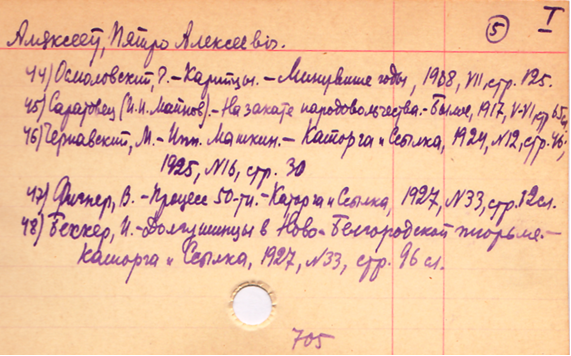 ⑤ I
Аляксееў, Пятро Алексеевіч.
44) Осмоловский, Г. – Карийцы. – Минувшие годы, 1908, VII, стр. 125.
45) Саратовец (И.И. Майнов). – На закате народовольчества. – Былое, 1917, V-VI, стр. 65
46) Чернавский, М. – Ипп. Мышкин. – Каторга и Ссылка, 1924, №12, стр. 46;
1925, №16, стр. 30
47) Фигнер, В. – Процесс 50-ти. – Каторга и Ссылка, 1927, №33, стр. 12 сл.
48) Беккер, И. – Долгушинцы в Ново-Белгородской тюрьме. –
Каторга и Ссылка, 1927, №33, стр. 96 сл.
705